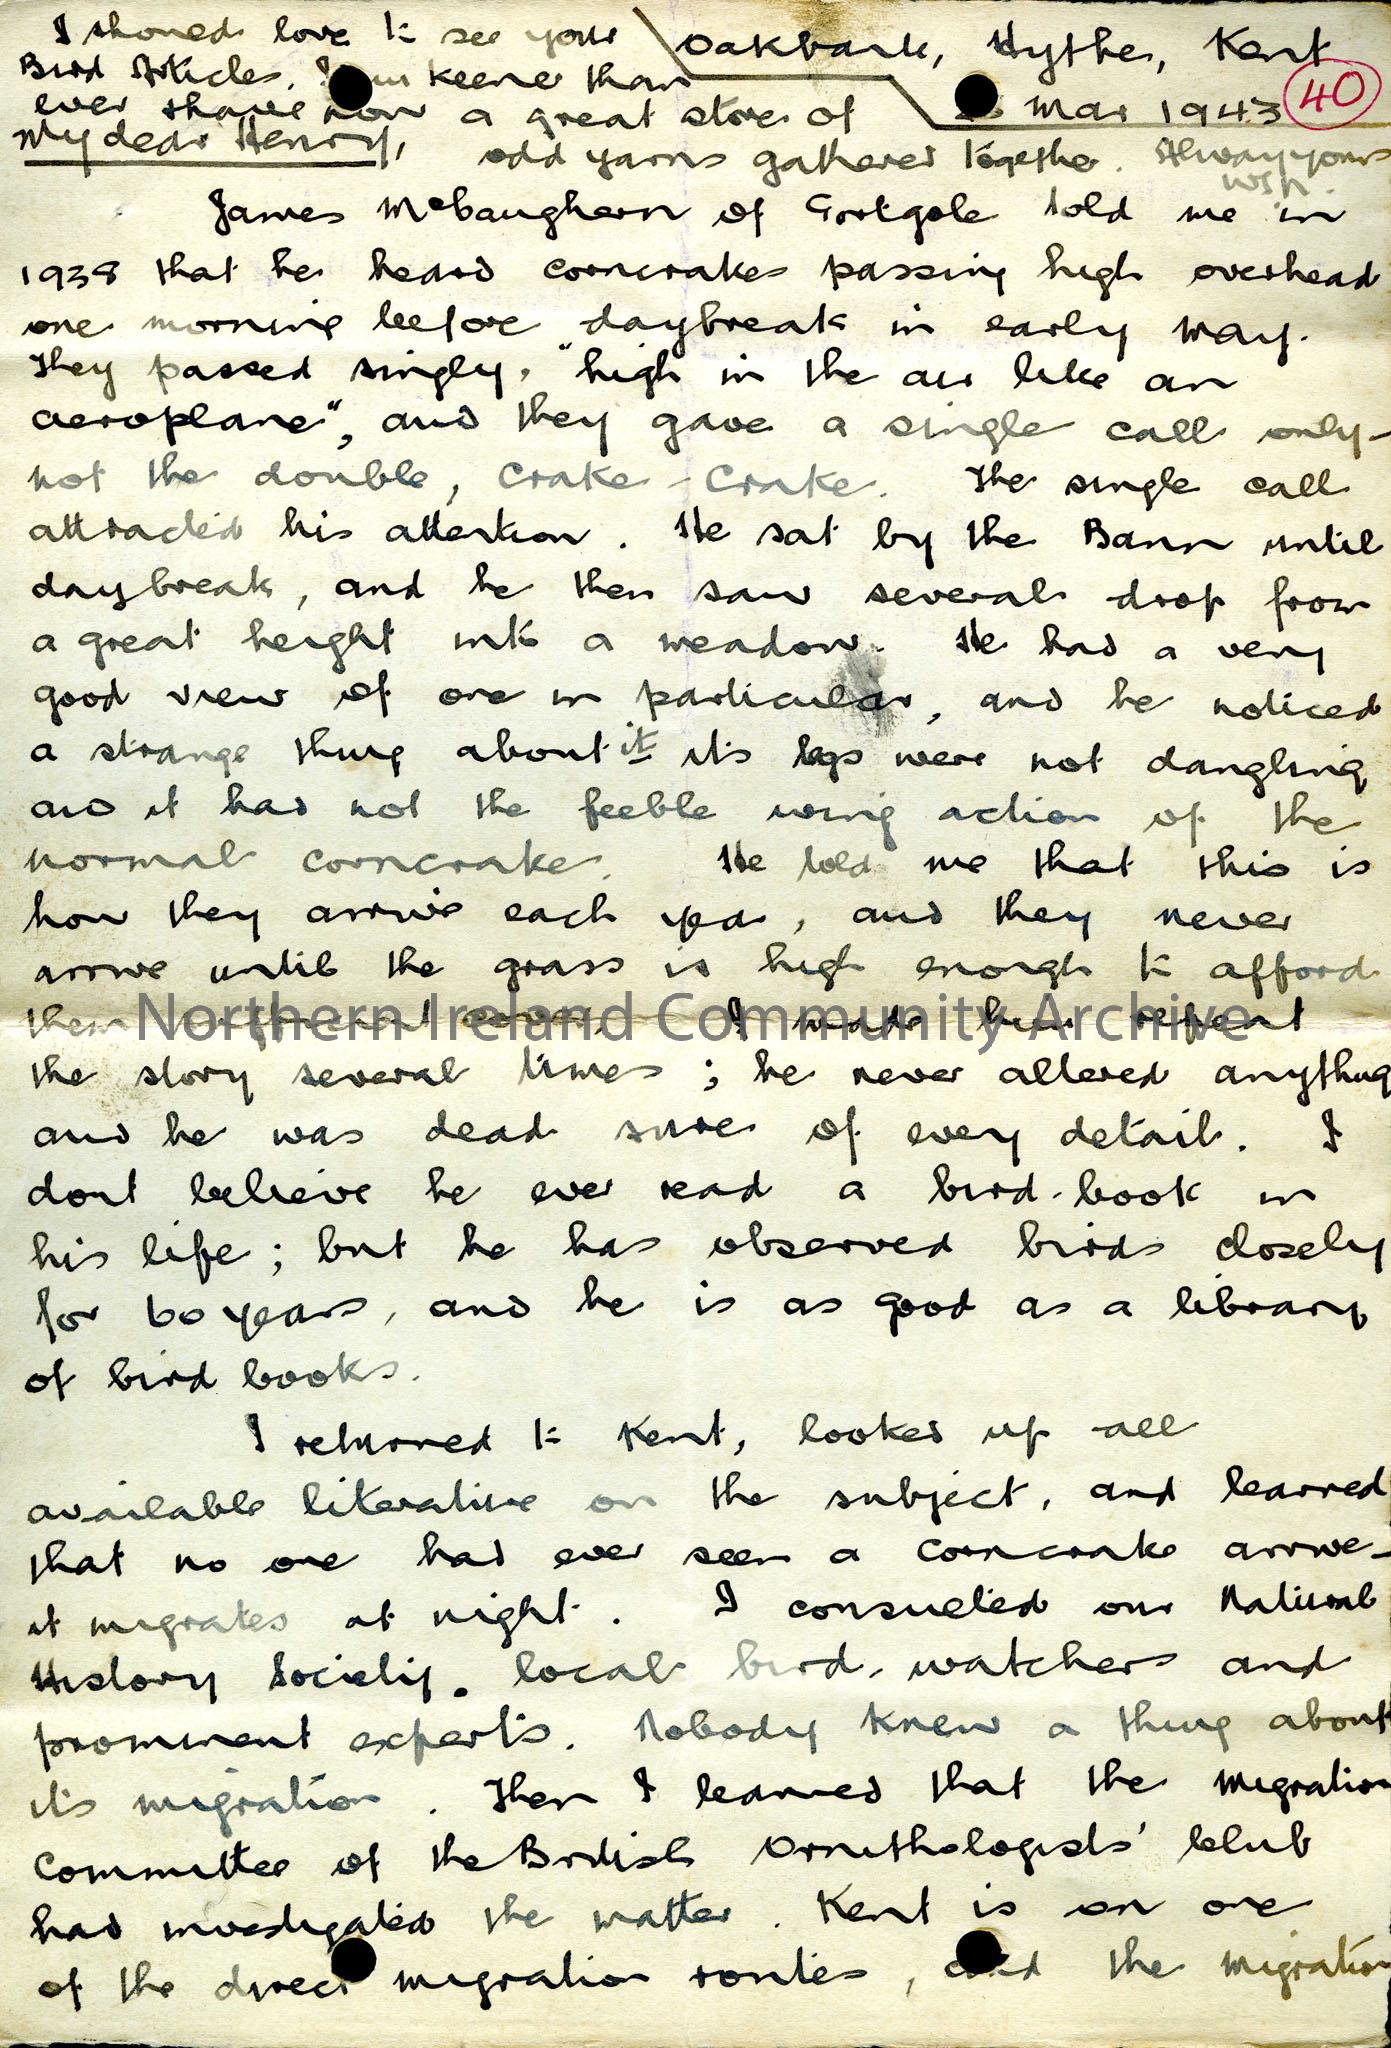 I should love to see your
Bird Articles. I am keener than
ever & have now a great store of
odd yarns gathered together. Always yours
WSH.
Oakbank, Hythe, Kent
Mar 1943
40
My dear Henry,
James McCaughern of Gortgole told me in
1938 that he heard corncrakes passing high overhead
one morning before daybreak in early May.
They passed singly, "high in the air like an
aeroplane", and they gave a single call only -
not the double, Crake-Crake. The single call
attracted his attention. He sat by the Bann until
daybreak, and he then saw several drop from
a great height into a meadow. He had a very
good view of one in particular, and he noticed
a strange thing about it its legs were not dangling
and it had not the feeble wing action of the
normal corncrake. He told me that this is
how they arrive each year, and they never
arrive until the grass is high enough to afford
them sufficient cover. I made him repeat
the story several times; he never altered anything
and he was dead sure of every detail. I
dont believe he ever read a bird-book in
his life; but he has observed birds closely
for 60 years, and he is as good as a library
of bird books.
I returned to Kent, looked up all
available literature on the subject, and learned
that no one had ever seen a Corncrake arrive -
it migrates at night. I consulted our Natural
History Society, local bird-watchers and
prominent experts. Nobody knew a thing about
its migration. Then I learned that the Migration
Committee of the British Ornithologists' Club
had investigated the matter. Kent is on one
of the direct migration routes, and the migration
Northern Ireland Community Archive